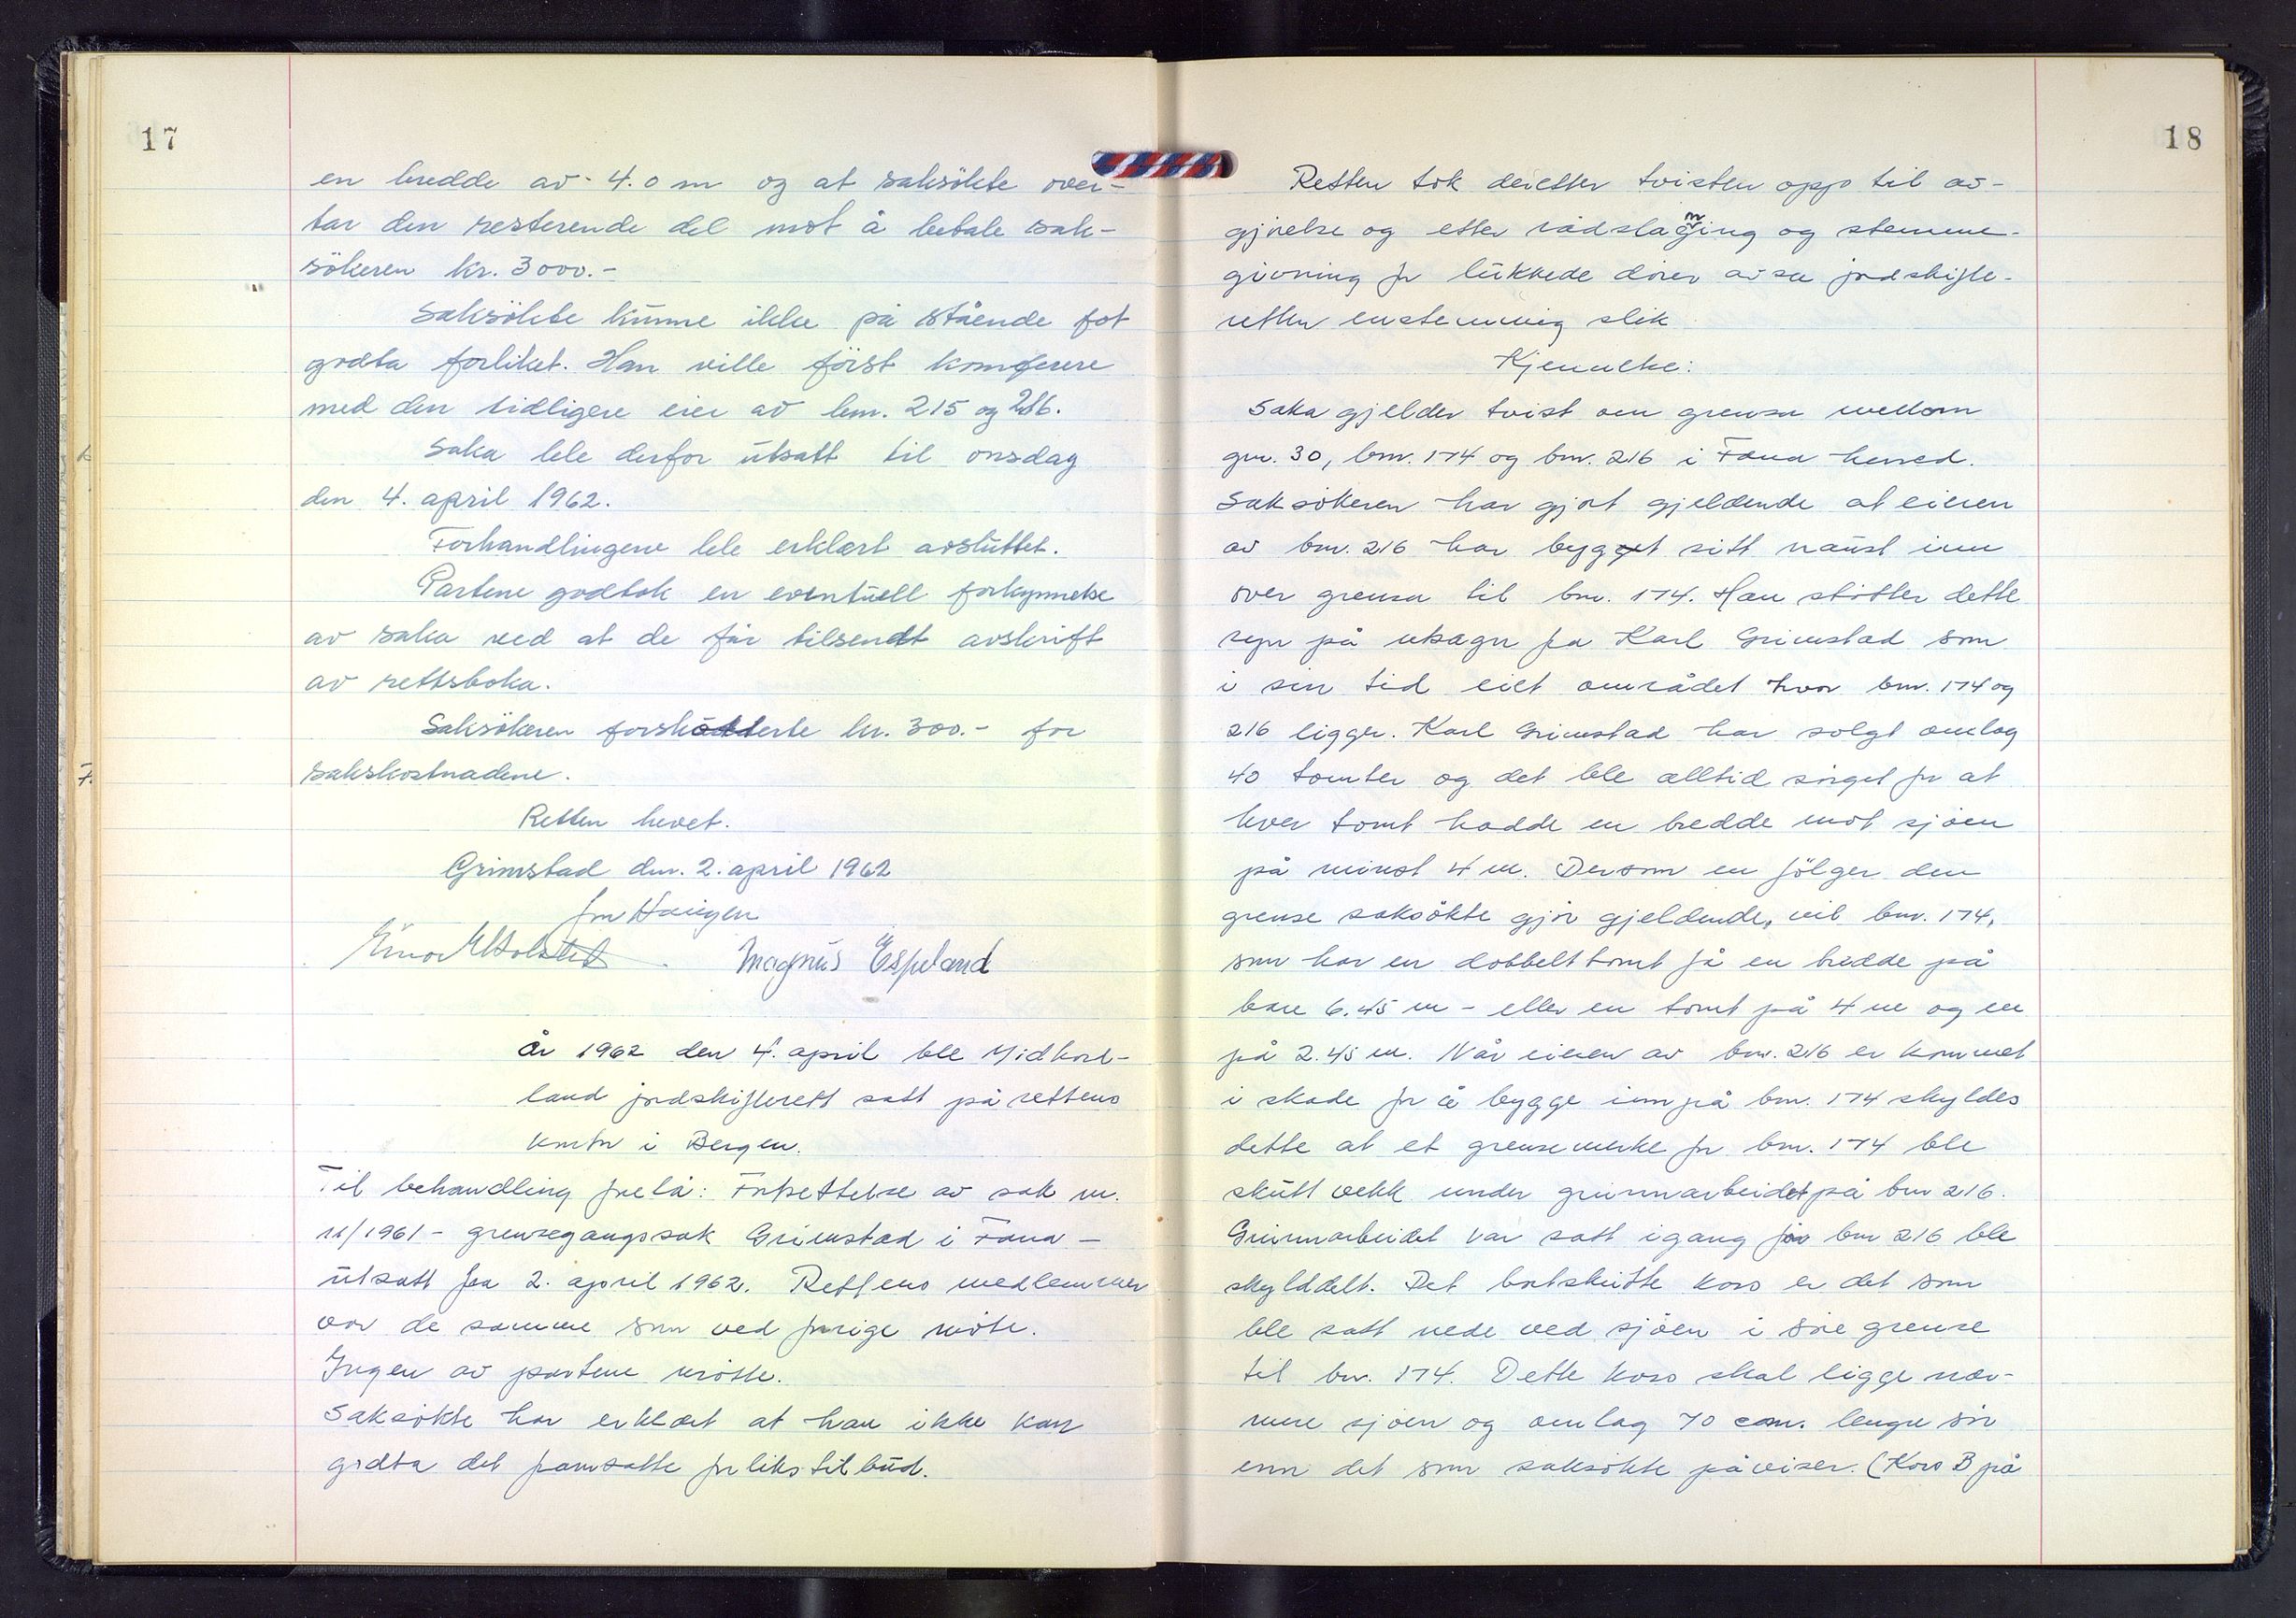 17
en bredde av 4.0 m og at saksökte over-
tar den resterende del mot å betale sak-
sökeren kr. 3000.-
Saksökte kunne ikke på stående fot
godta forliket. Han ville først konferere
med den tidligere eier av bnr. 215 og 216.
Saka ble derfor utsatt til onsdag
den 4. april 1962.
Forhandlingene ble erklært avsluttet.
Partene godtok en eventuell forkynnelse
av saka ved at de får tilsendt avskrift
av rettsboka.
Saksökeren forskotterte kr. 300.- for
sakskostnadene.
Retten hevet.
Grimstad den. 2. april 1962
Jon Haugen
Magnus Espeland
År 1962 den 4. april ble Midhord-
land jordskifterett satt på rettens
kontor i Bergen.
Til behandling forelå: Fortsettelse av sak nr.
11/1961 - grensegangssak Grimstad i Fana -
utsatt fra 2. april 1962. Rettens medlemmer
var de samme som ved forrige møte.
Ingen av partene møtte.
Saksøkte har erklært at han ikke kan
godta det framsatte forlikstilbud.
18
Retten tok deretter tvisten opp til av-
gjørelse og etter rådslagning og stemme-
givning for lukkede dører avsa jordskifte-
retten enstemmig slik
Kjennelse:
Saka gjelder tvist om grensa mellom
gnr. 30, bnr. 174 og bnr. 216 i Fana herred.
Saksøkeren har gjort gjeldende at eieren
av bnr. 216 har bygget sitt naust inn
over grensa til bnr. 174. Han støtter dette
syn på utsagn fra Karl Grimstad som
i sin tid eiet området hvor bnr. 174 og
216 ligger. Karl Grimstad har solgt omlag
40 tomter og det ble alltid sørget for at
hver tomt hadde en bredde mot sjøen
på minst 4 m. Dersom en følger den
grense saksøkte gjør gjeldende, vil bnr. 174,
som har en dobbelttomt få en bredde på
bare 6.45 m - eller en tomt på 4 m og en
på 2.45 m. Når eieren av bnr. 216 er kommet
i skade for å bygge inn på bnr. 174 skyldes
dette at et grensemerke for bnr. 174 ble
skutt vekk under grunnarbeidet på bnr 216.
Grunnarbeidet var satt igang før bnr 216 ble
skylddelt. Det bortskutte kors er det som
ble satt nede ved sjøen i søre grense
til bnr. 174. Dette kors skal ligge nær-
mere sjøen og omlag 70 cm. lengre sør
enn det som saksøkte påviser. (Kors B på